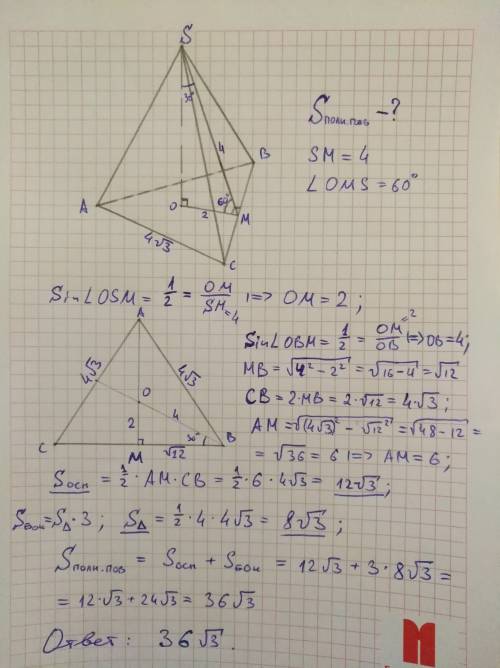 S
30°
4
B
A
O
60°
2
M
4√3
C
Sполн.пов - ?
SM = 4
∠OMS = 60°
Sin∠OSM = 1/2 = OM/SM=4 |=> OM = 2 ;
A
4√3
4√3
O
2
4
30°
C
M
√12
B
Sin∠OBM = 1/2 = OM=2/OB |=> OB = 4;
MB = √(4² - 2²) = √(16 - 4) = √12
CB = 2·MB = 2·√12 = 4√3 ;
AM = √((4√3)² - √12²) = √(48 - 12) =
= √36 = 6 |=> AM = 6 ;
Sосн = 1/2 · AM · CB = 1/2 · 6 · 4√3 = 12√3 ;
Sбок = S△ · 3 ; S△ = 1/2 · 4 · 4√3 = 8√3 ;
Sполн.пов = Sосн + Sбок = 12√3 + 3 · 8√3 =
= 12·√3 + 24√3 = 36√3
Ответ: 36√3.